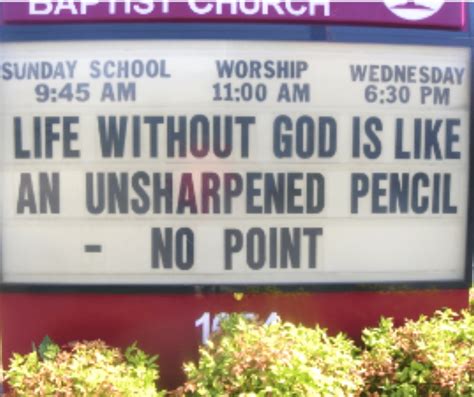 BAPTIST CHURCH
SUNDAY SCHOOL WORSHIP WEDNESDAY
9:45 AM 11:00 AM 6:30 PM
LIFE WITHOUT GOD IS LIKE
AN UNSHARPENED PENCIL
- NO POINT